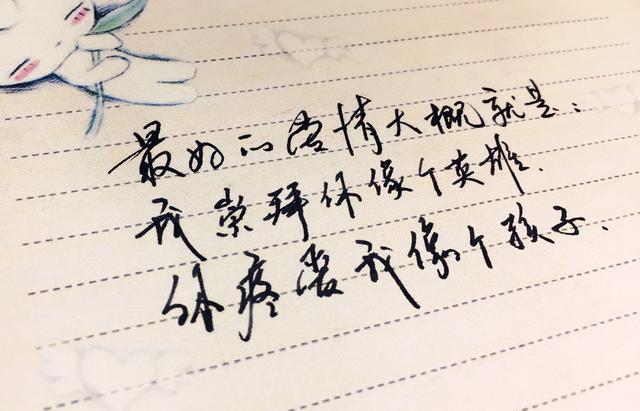 最好的爱情大概就是：
我崇拜你像个英雄.
你疼爱我像个孩子.